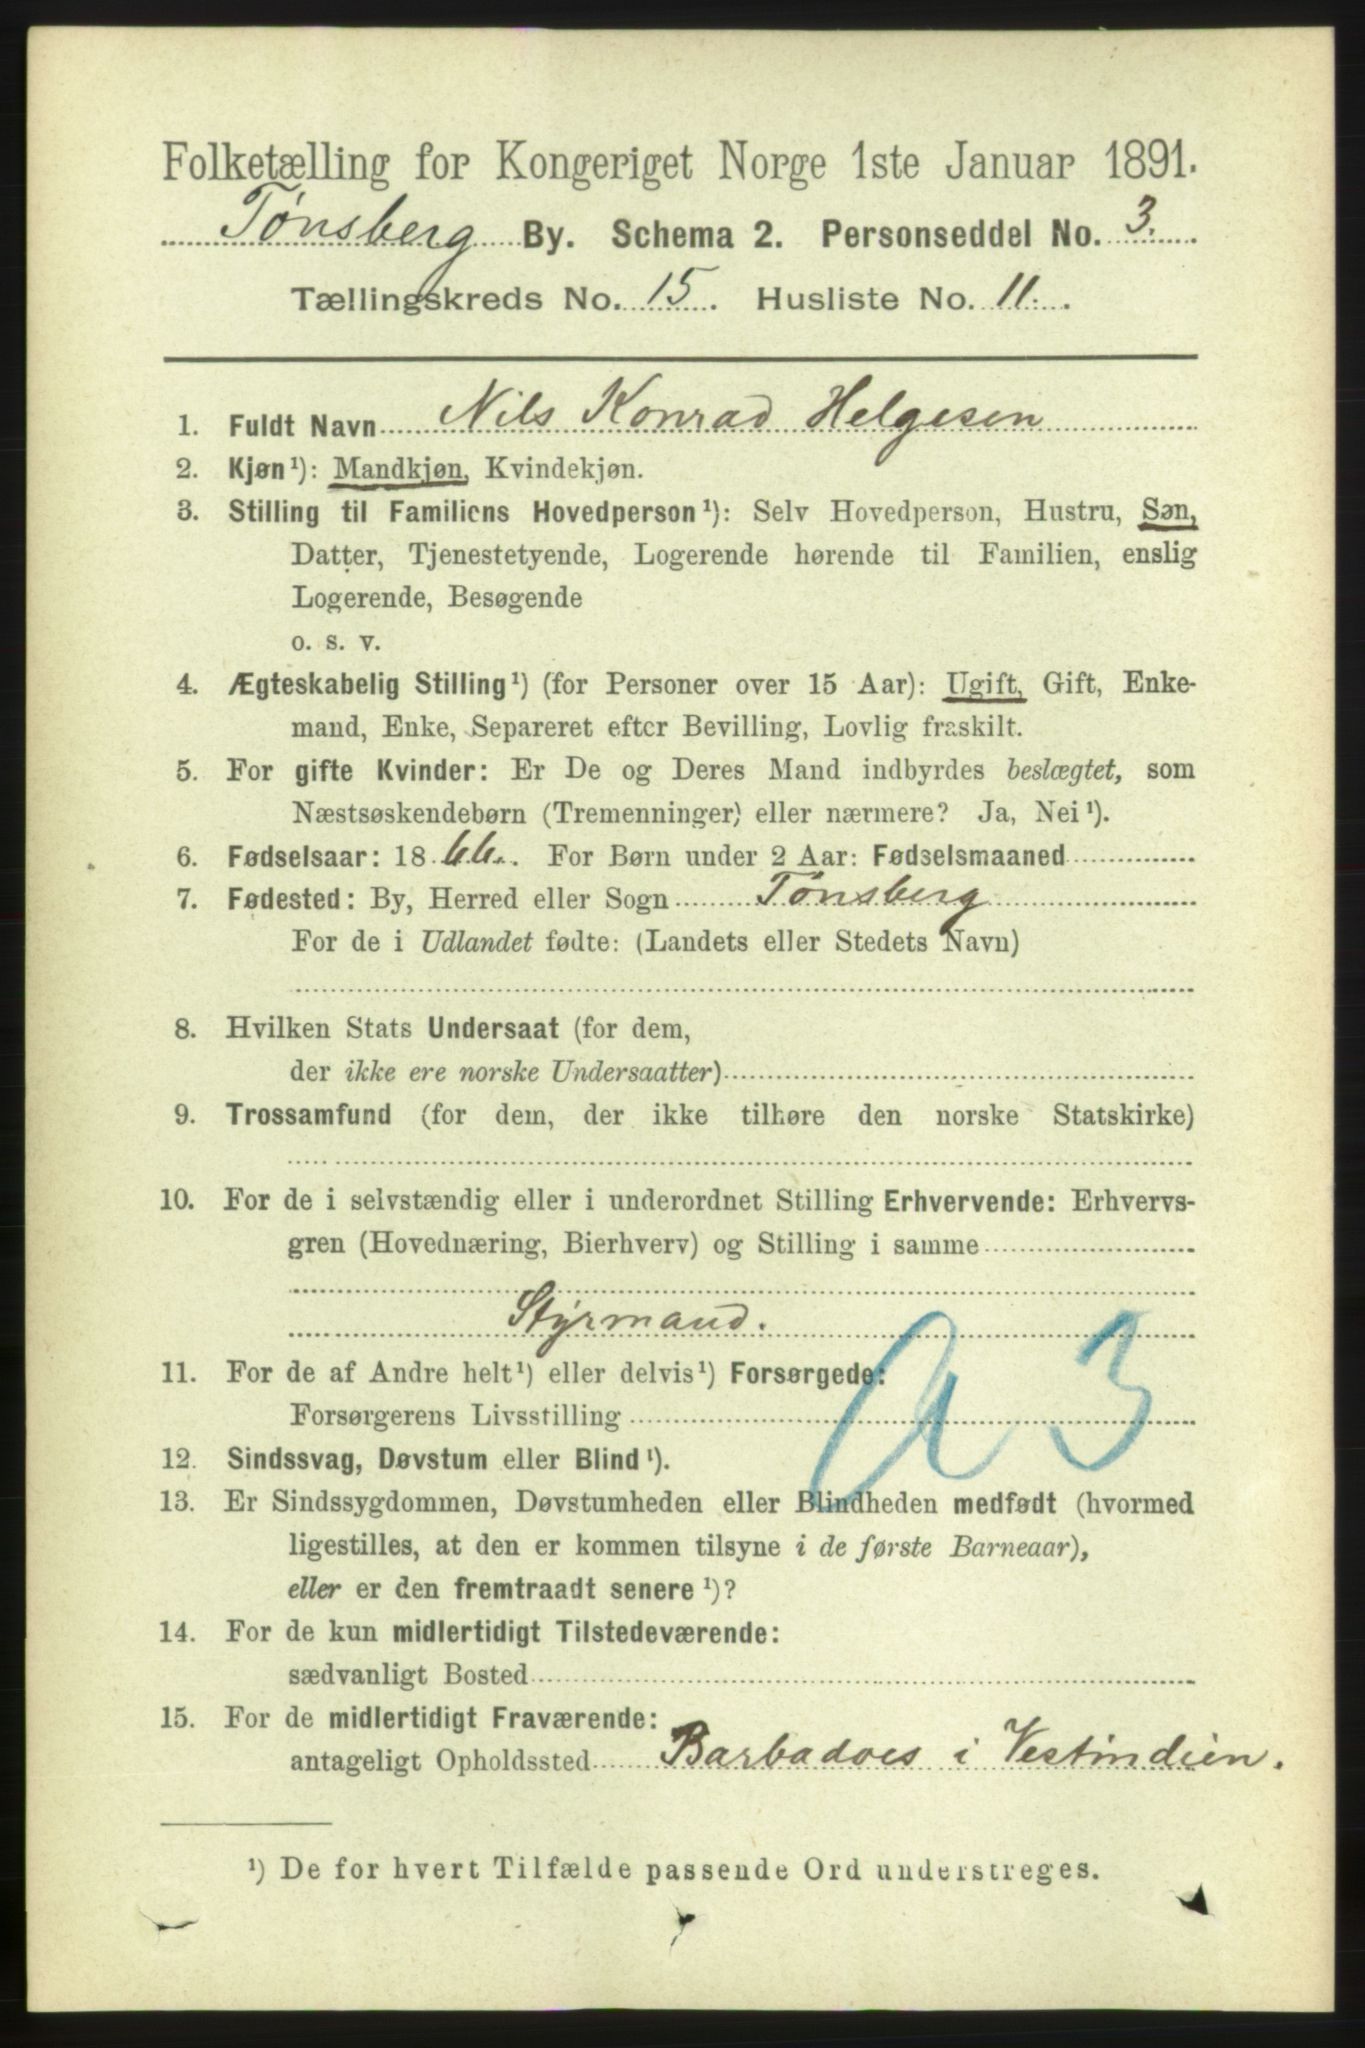 Folketælling for Kongeriget Norge 1ste Januar 1891.
Tønsberg By. Schema 2. Personseddel No. 3.
Tællingskreds No. 15. Husliste No. 11.
1. Fuldt Navn Nils Konrad Helgesen
2. Kjøn¹): Mandkjøn, Kvindekjøn.
3. Stilling til Familiens Hovedperson¹): Selv Hovedperson, Hustru, Søn,
Datter, Tjenestetyende, Logerende hørende til Familien, enslig
Logerende, Besøgende
o. s. v.
4. Ægteskabelig Stilling¹) (for Personer over 15 Aar): Ugift, Gift, Enke-
mand, Enke, Separeret efter Bevilling, Lovlig fraskilt.
5. For gifte Kvinder: Er De og Deres Mand indbyrdes beslægtet, som
Næstsøskendebørn (Tremenninger) eller nærmere? Ja, Nei¹).
6. Fødselsaar: 1866. For Børn under 2 Aar: Fødselsmaaned
7. Fødested: By, Herred eller Sogn Tønsberg
For de i Udlandet fødte: (Landets eller Stedets Navn)
8. Hvilken Stats Undersaat (for dem,
der ikke ere norske Undersaatter)
9. Trossamfund (for dem, der ikke tilhøre den norske Statskirke)
10. For de i selvstændig eller i underordnet Stilling Erhvervende: Erhvervs-
gren (Hovednæring, Bierhverv) og Stilling i samme
Styrmand.
11. For de af Andre helt¹) eller delvis¹) Forsørgede:
Forsørgerens Livsstilling
A 3
12. Sindssvag, Døvstum eller Blind¹).
13. Er Sindssygdommen, Døvstumheden eller Blindheden medfødt (hvormed
ligestilles, at den er kommen tilsyne i de første Barneaar),
eller er den fremtraadt senere¹)?
14. For de kun midlertidigt Tilstedeværende:
sædvanligt Bosted
15. For de midlertidigt Fraværende:
antageligt Opholdssted Barbadoes i Vestindien.
¹) De for hvert Tilfælde passende Ord understreges.